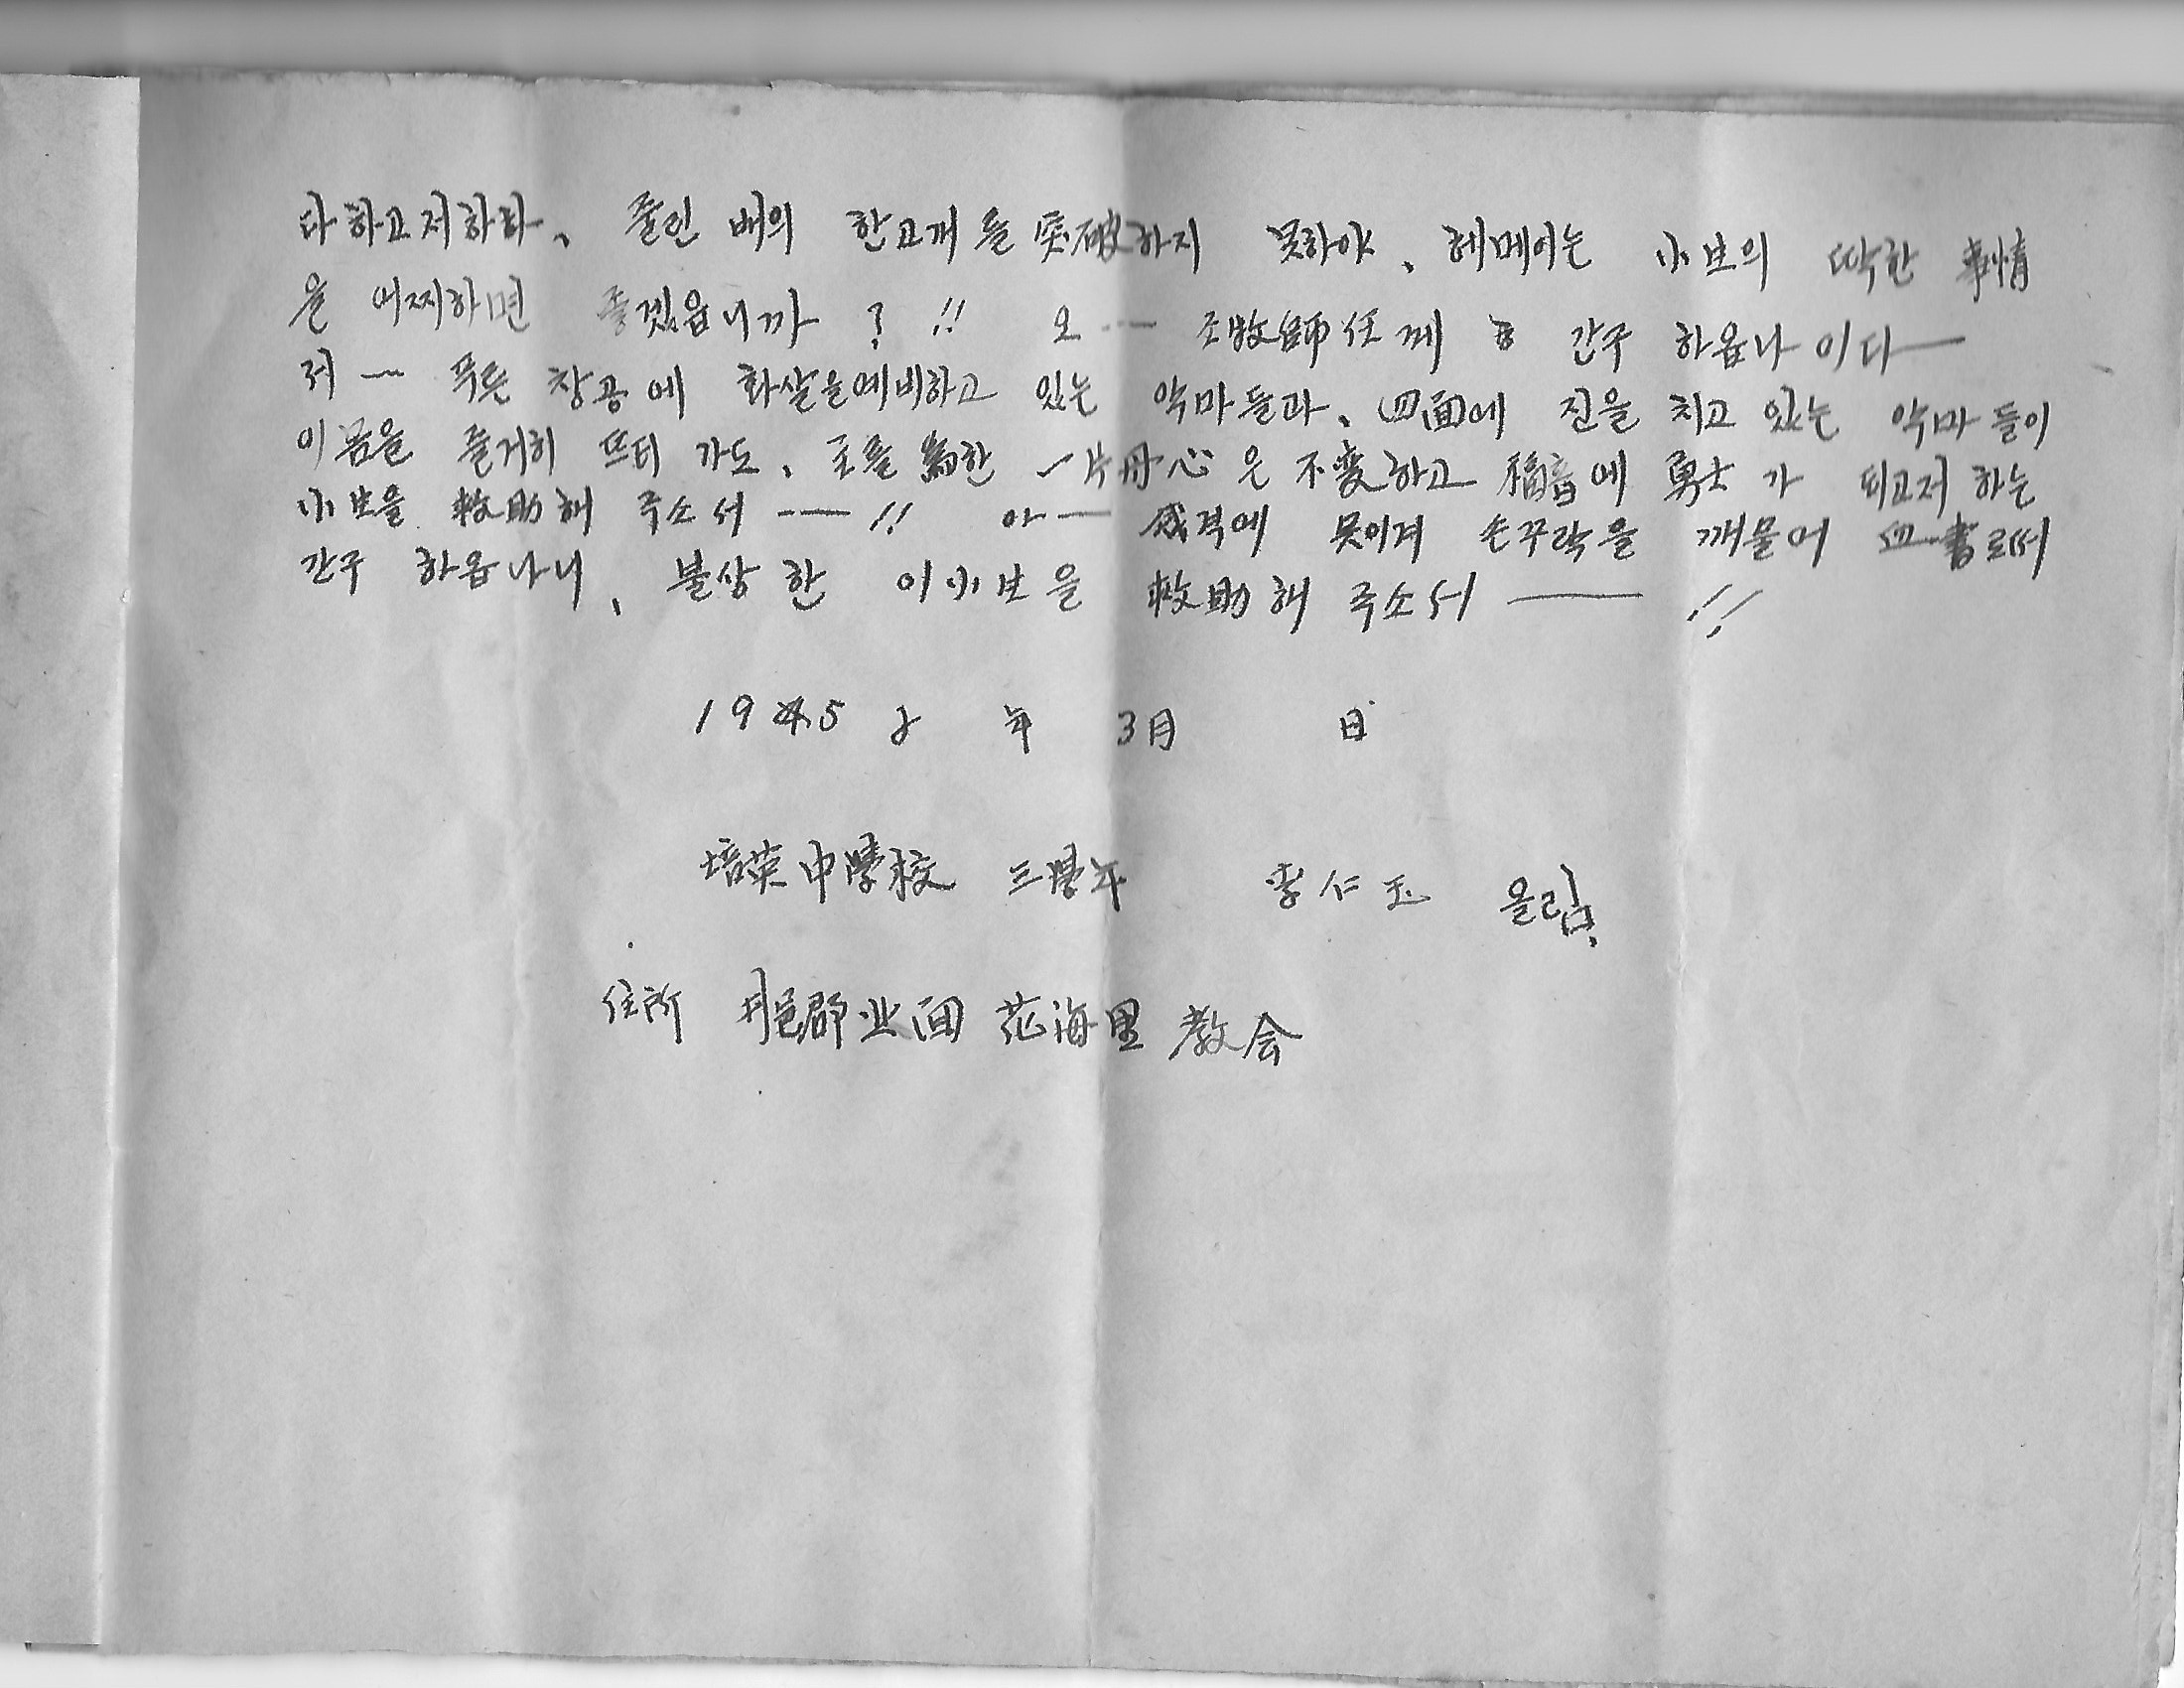 다하고저하나、 줄린 배의 한고개를 突破하지 못하야、 헤메이는 小生의 딱한 事情
을 어찌하면 좋겠읍니까 ? !! 오 ㅡ 조牧師任께 간구 하옵나이다ㅡ
저 ㅡ 푸른 창공에 화살을예비하고 있는 악마들과、四面에 진을 치고 있는 악마들이
이몸을 즐거히 뜨더 가도、主를 爲한 一片丹心은 不変하고 福音에 勇士가 되고저 하는
小生을 救助해 주소서 ㅡㅡ !! 아ㅡ 感격에 못이겨 손꾸락을 깨물어 血書로써
간구 하옵나니、 불상한 이小生을 救助해 주소서 ㅡㅡ !!
195 年 3月 日
培英中學校 三學年 李仁玉 올림.
住所 井邑郡 北面 花海里 敎会